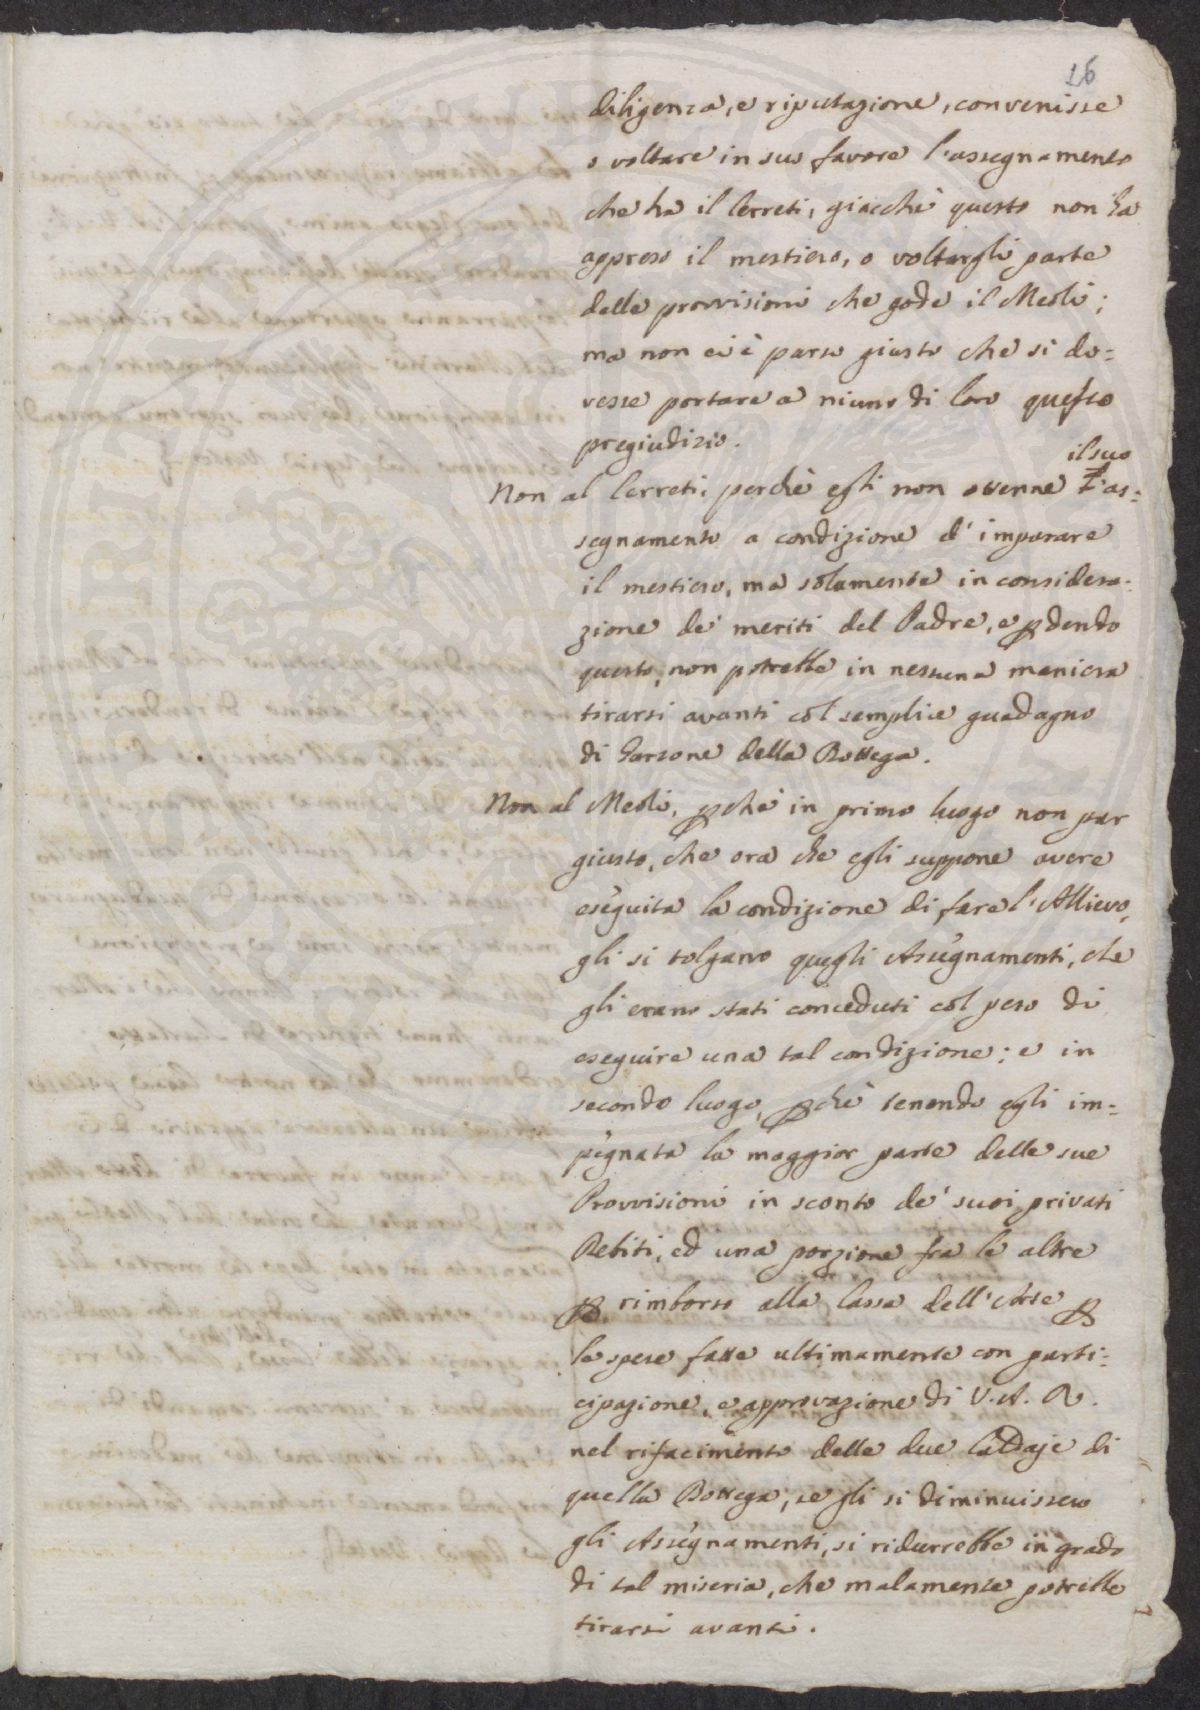 26
diligenza, e riputazione, convenisse
o voltare in suo favore l'assegnamento
che ha il Cerreti, giacchè questo non ha
appreso il mestiero, o voltargli parte
delle provvisioni che gode il Meoli;
ma non ci è parso giusto che si do=
vesse portare a niuno di loro questo
pregiudizio.
il suo
Non al Cerreti, perchè egli non ottenne l'as=
segnamento a condizione d'imparare
il mestiero, ma solamente in considera=
zione de' meriti del Padre, e pdendo
questo, non potrebbe in nessuna maniera
tirarsi avanti col semplice guadagno
di Garzone della Bottega.
Non al Meoli, pchè in primo luogo non par
giusto, che ora che egli suppone avere
eseguita la condizione di fare l'Allievo,
gli si tolgano quegli Assegnamenti, che
gli erano stati conceduti col peso di
eseguire una tal condizione; e in
secondo luogo, pchè tenendo egli im=
pegnata la maggior parte delle sue
Provvisioni in sconto de' suoi privati
Debiti, ed una porzione fra le altre
p rimborso alla Cassa dell'Arte p
le spese fatte ultimamente con parti=
cipazione, e approvazione di V. A. R.
nel rifacimento delle due Caldaje di
quella Bottega, se gli si diminuissero
gli Assegnamenti, si ridurrebbe in grado
di tal miseria, che malamente potrebbe
tirarsi avanti.